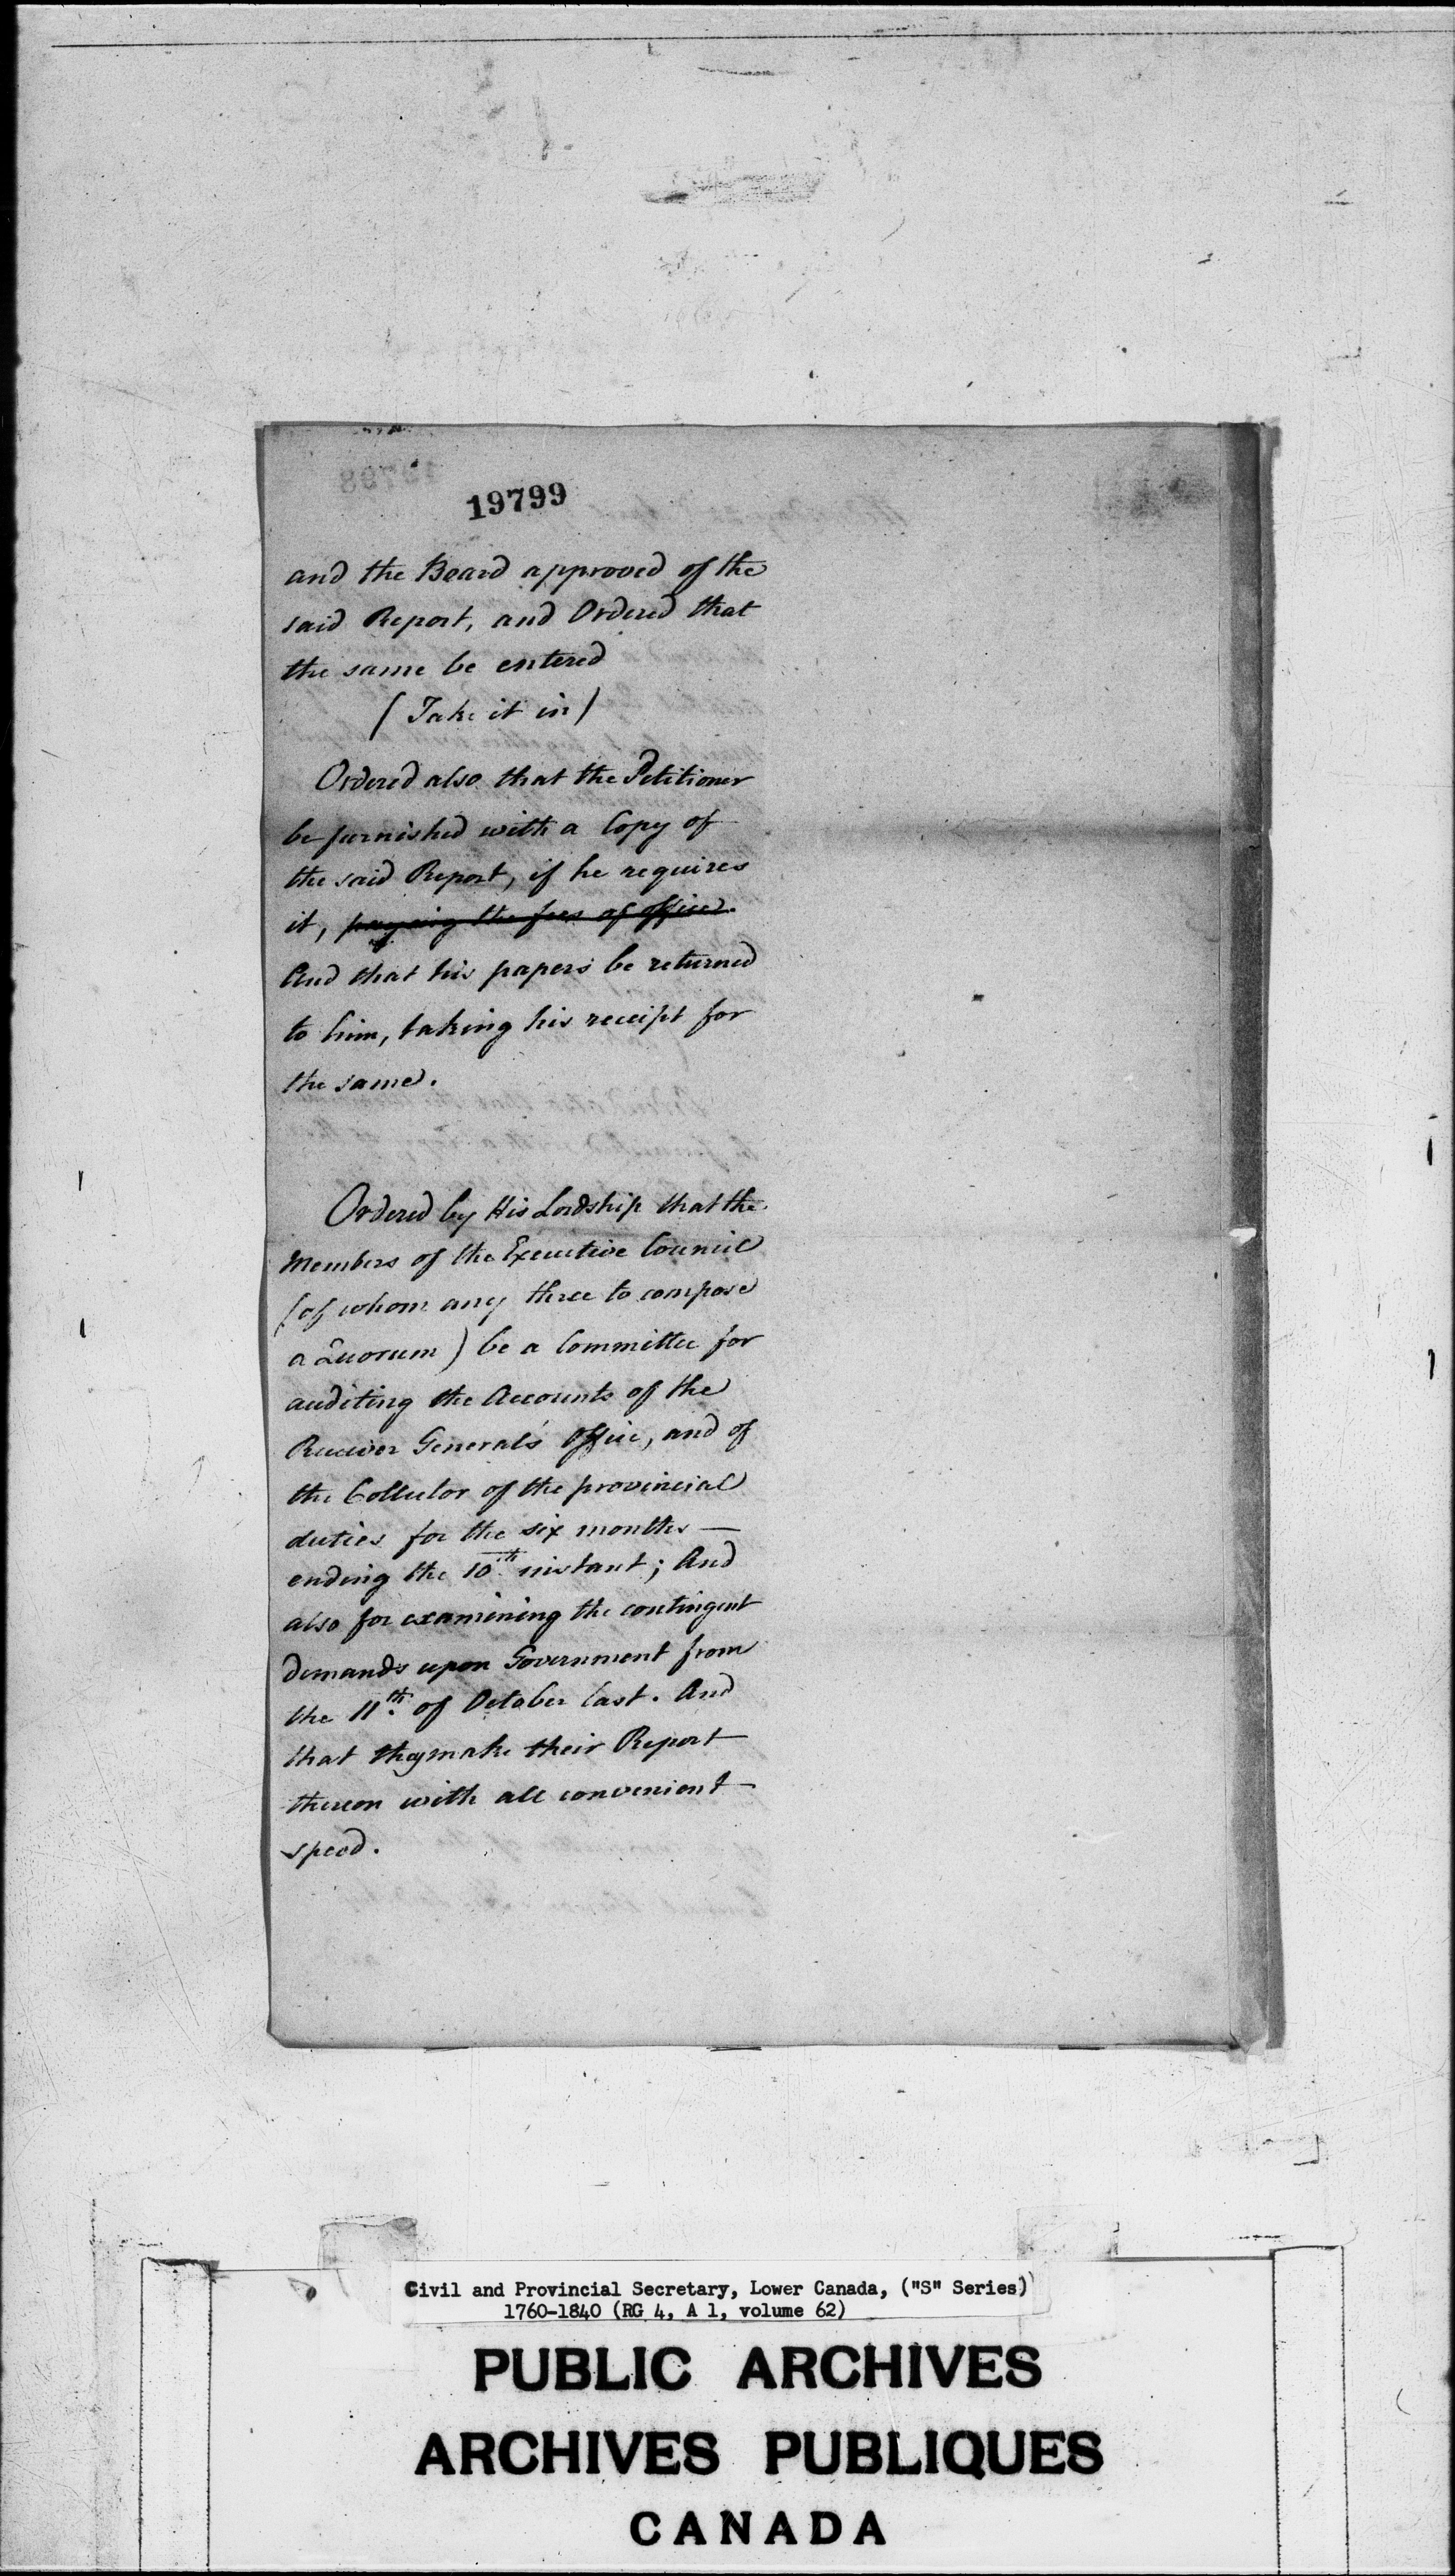 19799
and the Board approved of the
said Report, and Ordered that
the same be entered
(Take it in)
Ordered also that the Petitioner
be furnished with a Copy of
the said Report, if he requires
it, paying the fees of office.
And that his papers be returned
to him, taking his receipt for
the same.
Ordered by His Lordship that the
Members of the Executive Council
(of whom any three to compose
a Quorum) be a Committee for
auditing the Accounts of the
Receiver General's Office, and of
the Collector of the provincial
duties for the six months —
ending the 10th instant; And
also for examining the contingent
demands upon Government from
the 11th of October last. And
that they make their Report
thereon with all convenient
speed.
Civil and Provincial Secretary, Lower Canada, ("S" Series)
1760-1840 (RG 4, A 1, volume 62)
PUBLIC ARCHIVES
ARCHIVES PUBLIQUES
CANADA